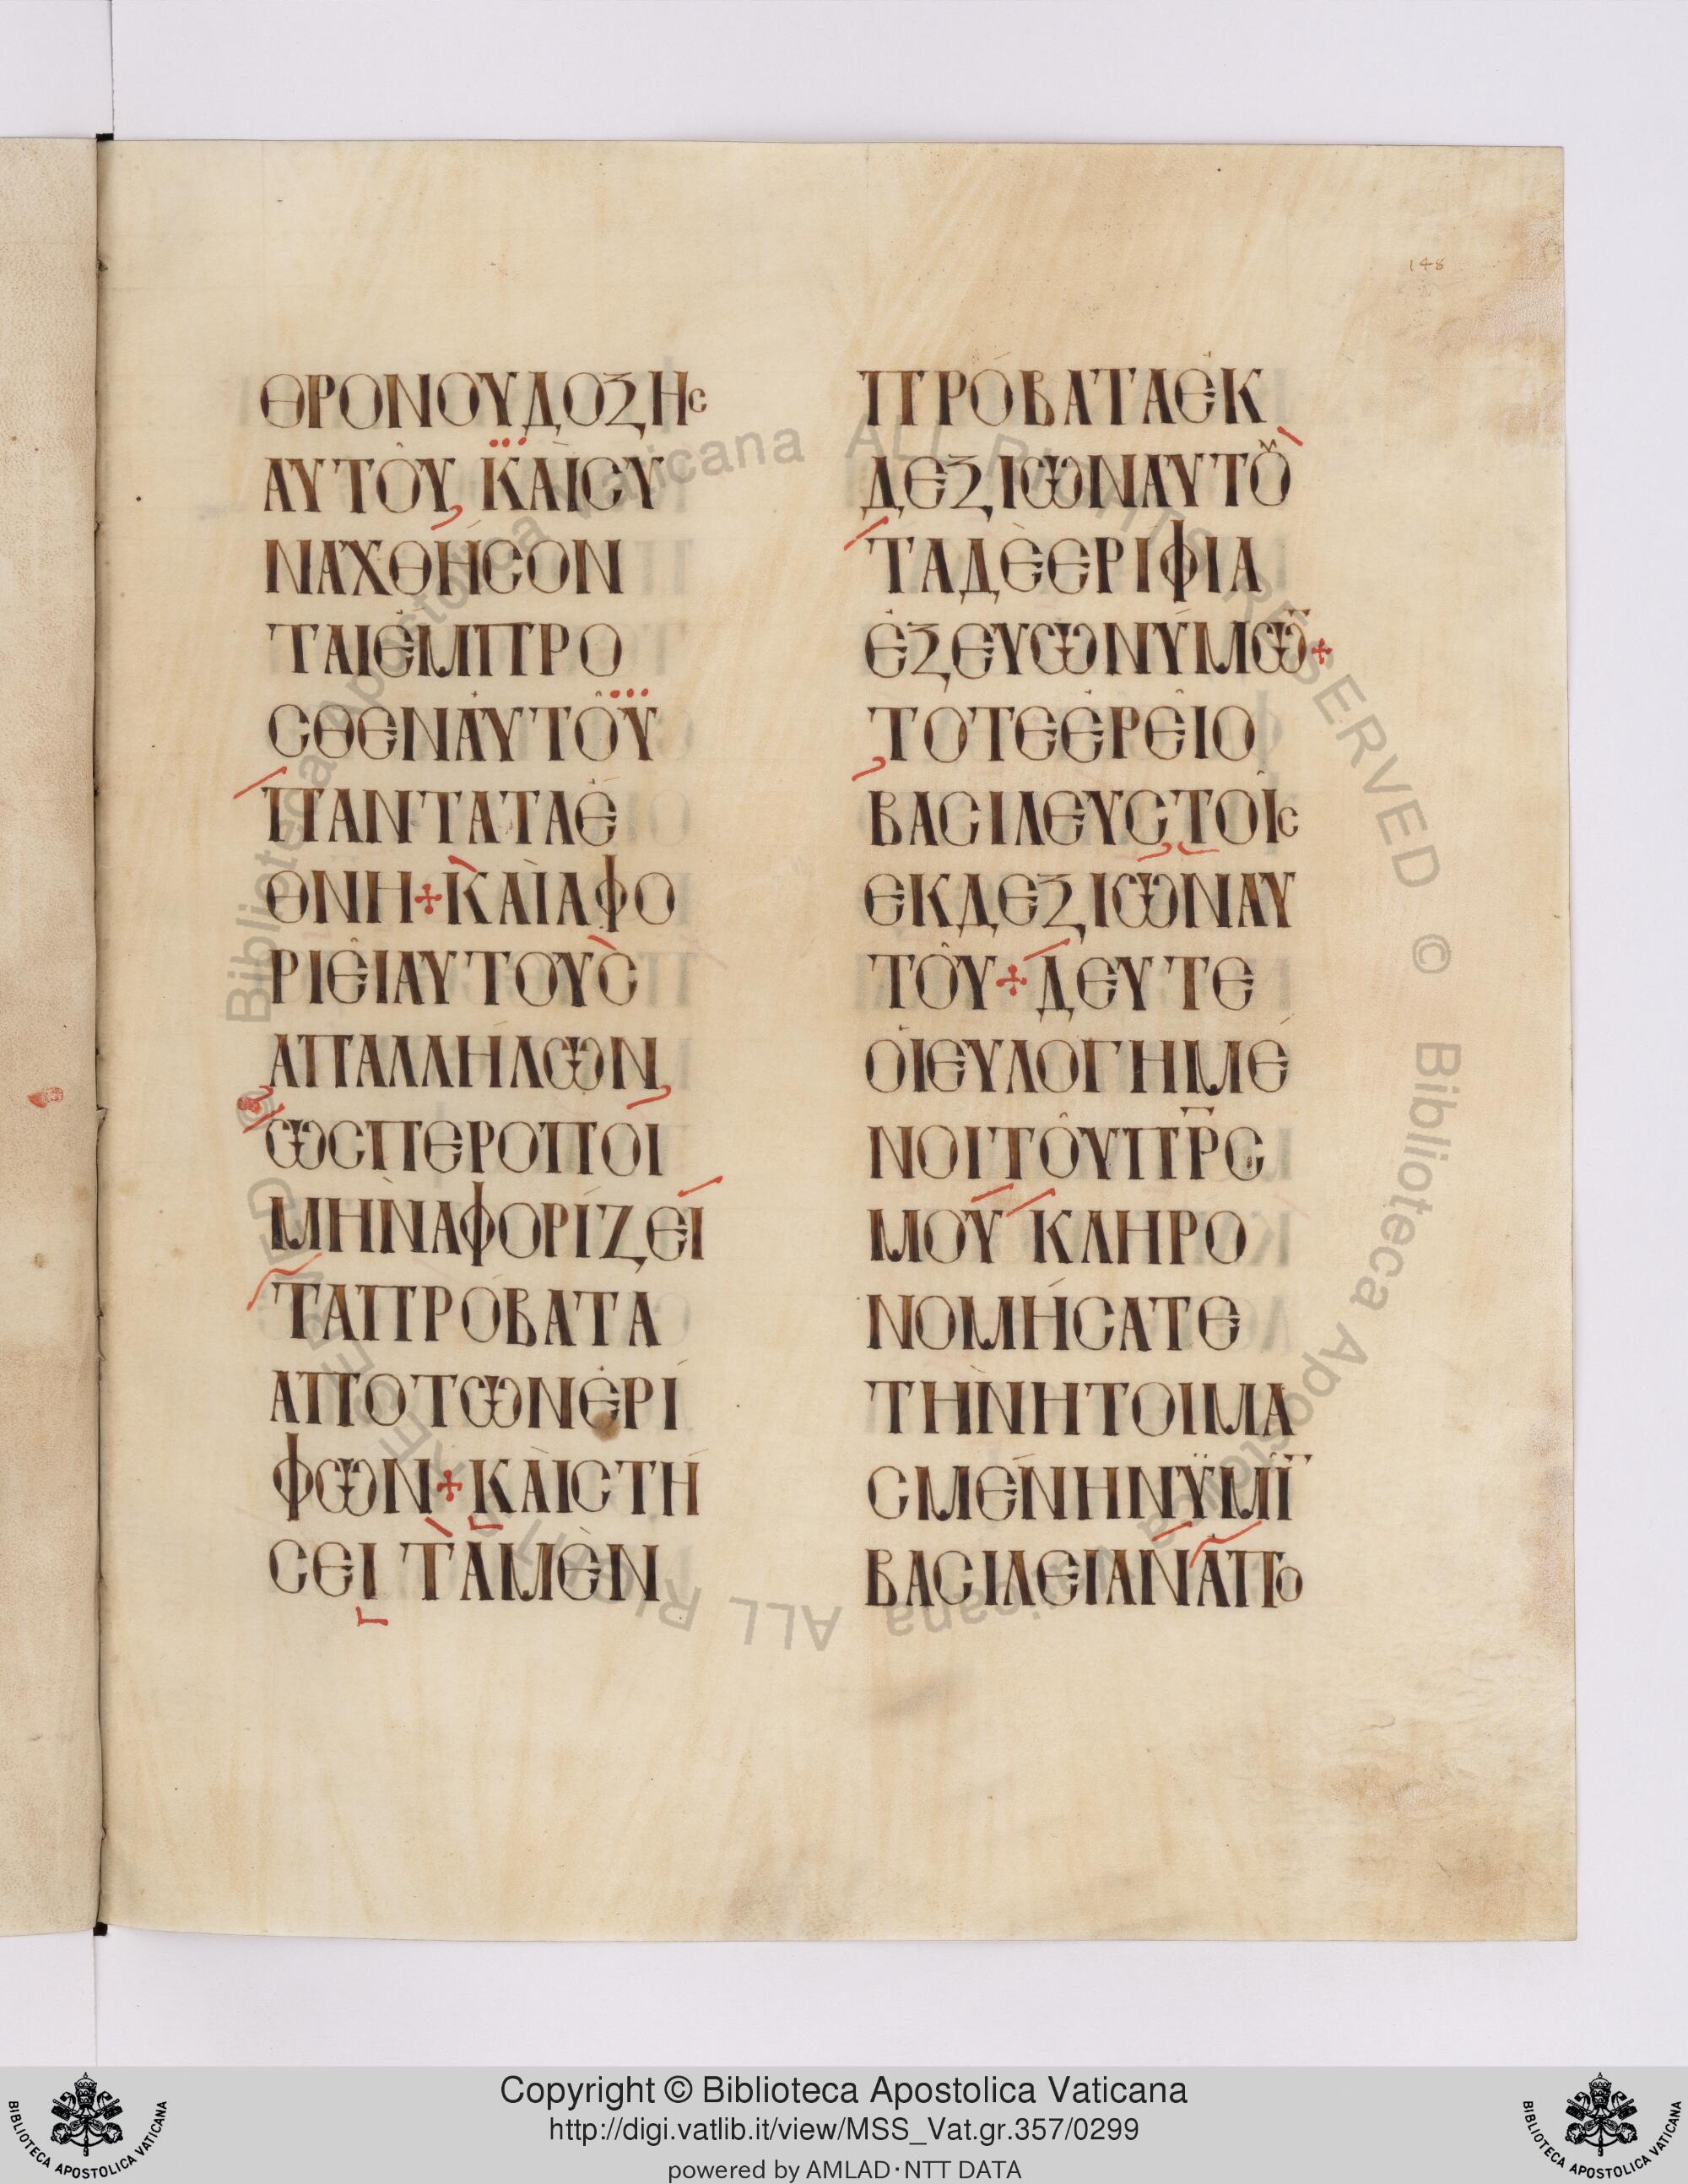 148
ΘΡΟΝΟΥΔΟΞΗς
ΑΥΤΟΥ ΚΑΙCΥ
ΝΑΧΘΗCΟΝ
ΤΑΙΕΜΠΡΟ
CΘΕΝΑΥΤΟΥ
ΠΑΝΤΑΤΑΕ
ΘΝΗ+ΚΑΙΑΦΟ
ΡΙΕΙΑΥΤΟΥC
ΑΠΑΛΛΗΛΩΝ
ΩCΠΕΡΟΠΟΙ
ΜΗΝΑΦΟΡΙΖΕΙ
ΤΑΠΡΟΒΑΤΑ
ΑΠΟΤΩΝΕΡΙ
ΦΩΝ+ΚΑΙCΤΗ
CΕΙ ΤΑΜΕΝ
ΠΡΟΒΑΤΑΕΚ
ΔΕΞΙΩΝΑΥΤΟ
ΤΑΔΕΕΡΙΦΙΑ
ΕΞΕΥΩΝΥΜΩ̅+
ΤΟΤΕΕΡΕΙΟ
ΒΑCΙΛΕΥCΤΟΙC
ΕΚΔΕΞΙΩΝΑΥ
ΤΟΥ+ΔΕΥΤΕ
ΟΙΕΥΛΟΓΗΜΕ
ΝΟΙΤΟΥΠΡ̅C
ΜΟΥ ΚΛΗΡΟ
ΝΟΜΗCΑΤΕ
ΤΗΝΗΤΟΙΜΑ
CΜΕΝΗΝΫΜΙ̅
ΒΑCΙΛΕΙΑΝΑΠΟ
© Biblioteca Apostolica Vaticana ALL RIGHTS RESERVED © Biblioteca Apostolica Vaticana ALL RIGHTS RESERVED
Copyright © Biblioteca Apostolica Vaticana
http://digi.vatlib.it/view/MSS_Vat.gr.357/0299
powered by AMLAD·NTT DATA
BIBLIOTECA APOSTOLICA VATICANA
BIBLIOTECA APOSTOLICA VATICANA